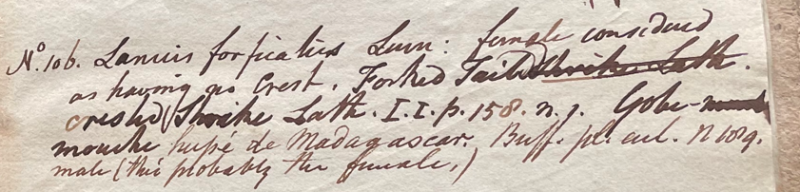 No. 106. Lanius forficatus Linn: female considered
as having no Crest. Forked Tailed Shrike Lath.
crested Shrike Lath. I.I.p. 158. n. 7. Gobe-mouche
mouche hupé de Madagascar. Buff. pl. enl. n 189.
male (this probably the female.)